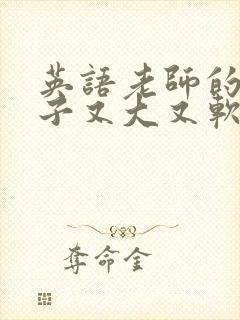 英語老師的
子又大又軟
奪命金